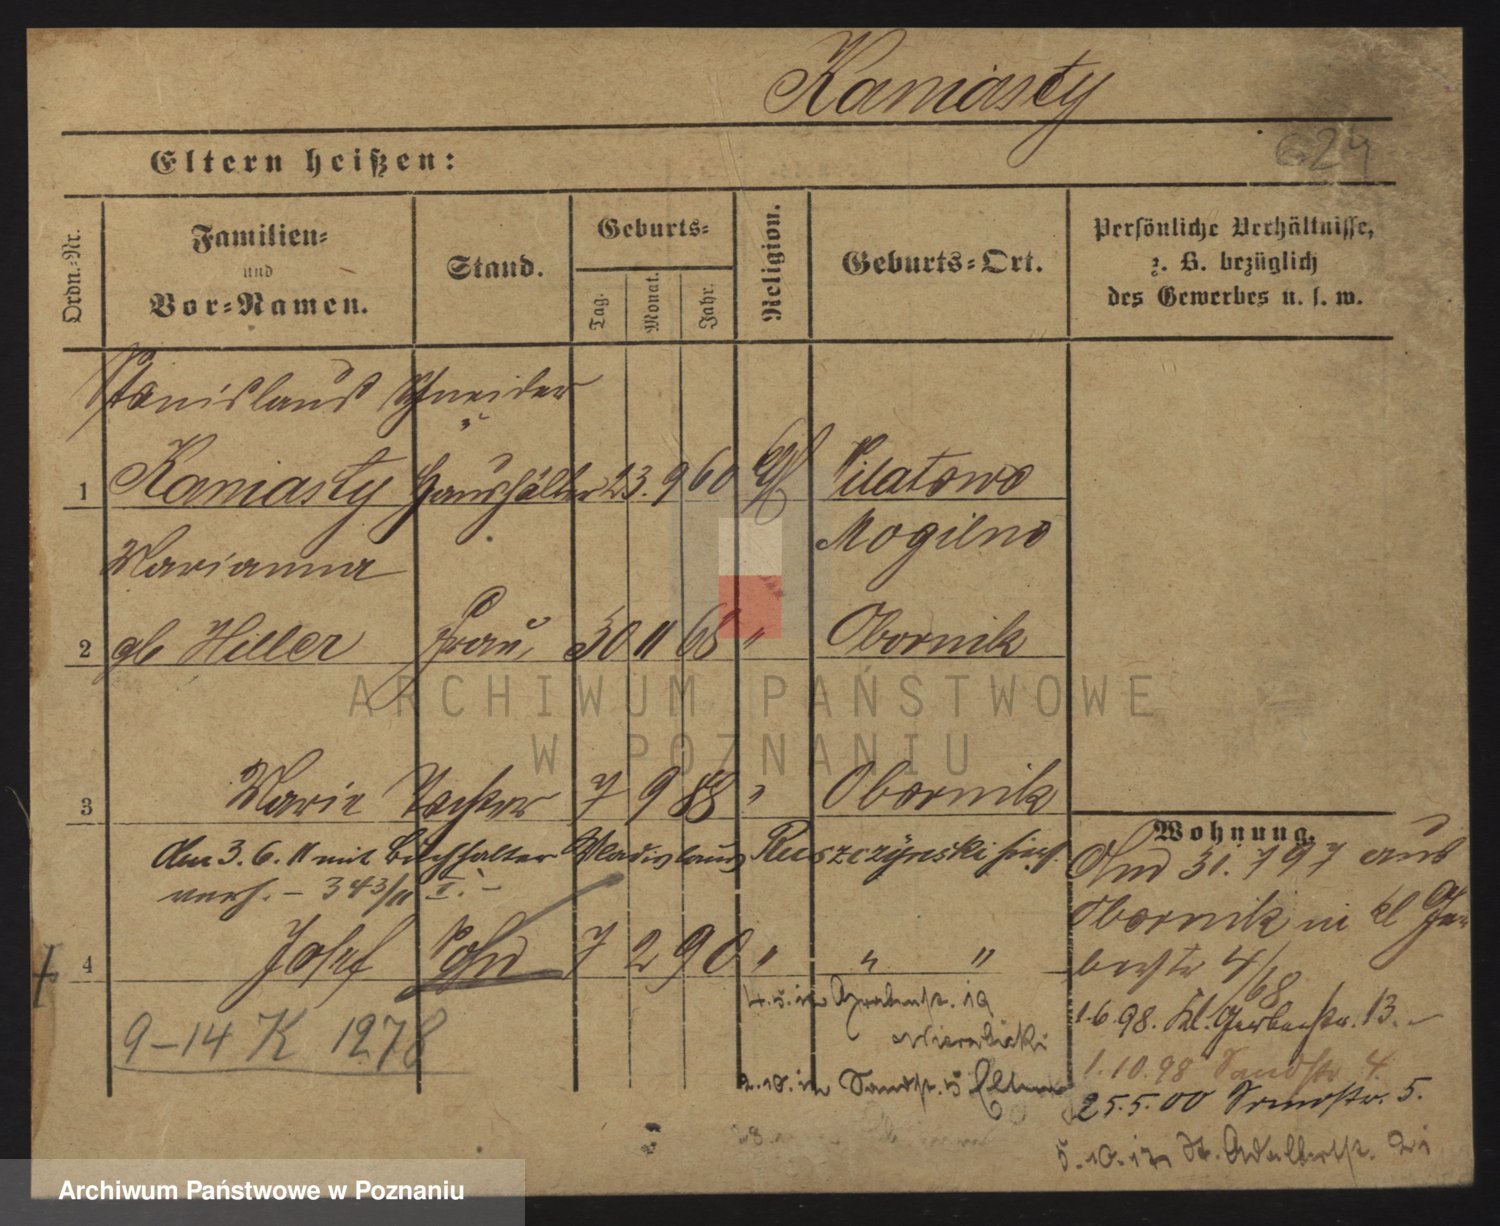 Kamiasty
624
Eltern heißen:
Ordn.-Nr.
Familien-
und
Vor-Namen.
Stand.
Geburts-
Tag.
Monat.
Jahr.
Religion.
Geburts-Ort.
Persönliche Verhältnisse,
z. B. bezüglich
des Gewerbes u. s. w.
Stanislaus Schneider
1 Kamiasty Haushälter 23. 9 60 Pilatowo
Mogilno
Marianna
2 gb Hiller Frau, 30 11 68 " Obornik
ARCHIWUM PAŃSTWOWE
W POZNANIU
3 Marie Tochter 7 9 88 " Obornik
Am 3. 6. 11 mit Buchhalter Wladislaus Ruszczynski hies.
verh. – 343/11 I. –
4 Josef Sohn 7 2 90 " " "
9–14 K 1278
4. 5. 12 Grabenstr. 19
2. 10. 12 Sandstr. 5 Eltern
Wohnung.
And 31. 7 97 aus
Obornik in kl Ger-
berstr 4/68
1.6.98. Kl. Gerberstr. 13. –
1.10.98 Sandstr 4.
25.5.00 Sandstr. 5.
5.10.17 St. Adalbertstr. 21
Archiwum Państwowe w Poznaniu